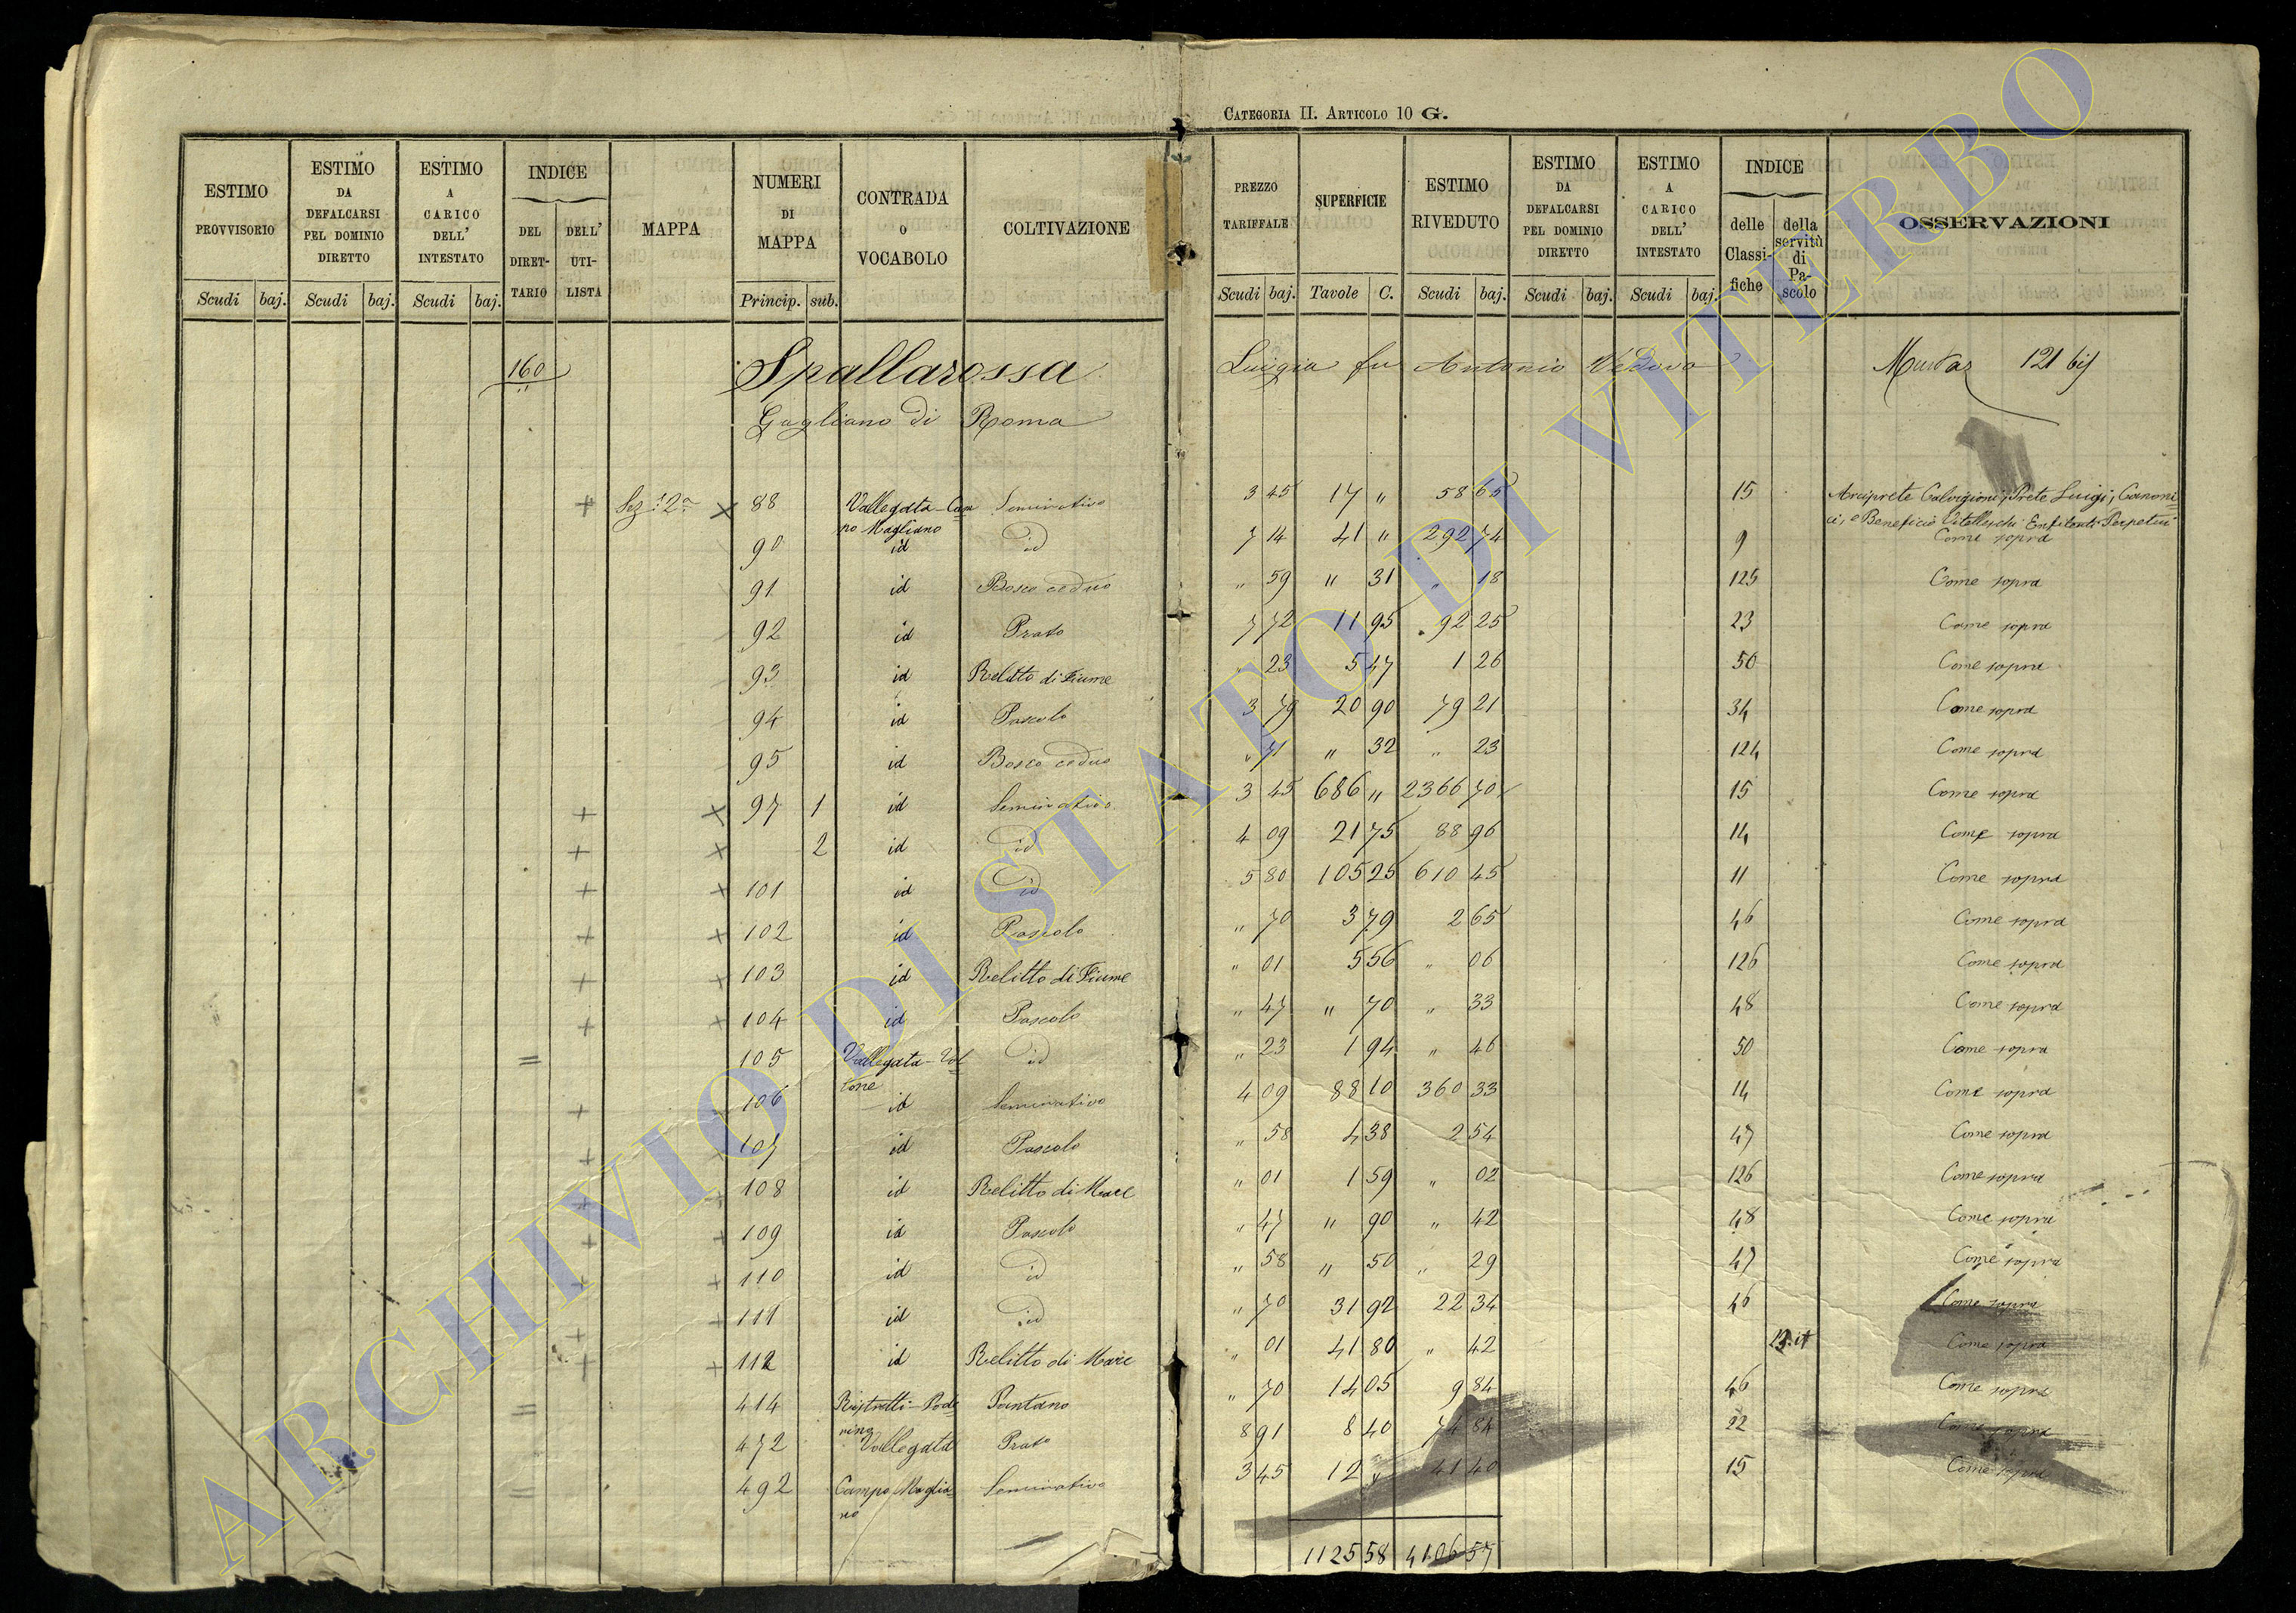 CATEGORIA II. ARTICOLO 10 G.
ESTIMO PROVVISORIO | ESTIMO DA DEFALCARSI PEL DOMINIO DIRETTO | ESTIMO A CARICO DELL' INTESTATO | INDICE DEL DIRETTARIO | DELL' UTILISTA | MAPPA | NUMERI DI MAPPA | CONTRADA O VOCABOLO | COLTIVAZIONE | PREZZO TARIFFALE | SUPERFICIE | ESTIMO RIVEDUTO | ESTIMO DA DEFALCARSI PEL DOMINIO DIRETTO | ESTIMO A CARICO DELL' INTESTATO | INDICE delle Classifiche | della servitù di Pascolo | OSSERVAZIONI
Scudi baj. | Scudi baj. | Scudi baj. | Princip. sub. | Scudi baj. | Tavole C. | Scudi baj. | Scudi baj. | Scudi baj.
160 Spallarossa Luigia fu Antonio Vedova 121 bis
Gagliano di Roma
+ Sez: 2a x 88 Vallegata-Cam Seminativo 3 45 17 " 58 65 15 Arciprete Calvigioni; Prete Luigi; Canoni
po Magliano ci, e Beneficio Vitelleschi Enfiteuti Perpetui
90 id id 7 14 41 " 292 74 9 Come sopra
91 id Bosco ceduo " 59 " 31 " 18 125 Come sopra
92 id Prato 7 72 11 95 92 25 23 Come sopra
93 id Relitto di Fiume " 23 5 47 1 26 50 Come sopra
94 id Pascolo 3 79 20 90 79 21 34 Come sopra
95 id Bosco ceduo " 71 " 32 " 23 124 Come sopra
+ x 97 1 id Seminativo 3 45 686 " 2366 70 15 Come sopra
+ x 2 id id 4 09 21 75 88 96 14 Come sopra
+ + 101 id id 5 80 105 25 610 45 11 Come sopra
+ x 102 id Pascolo " 70 3 79 2 65 46 Come sopra
+ + 103 id Relitto di Fiume " 01 5 56 " 06 126 Come sopra
+ + 104 id Pascolo " 47 " 70 " 33 48 Come sopra
= 105 Vallegata- id " 23 1 94 " 46 50 Come sopra
+ 106 id Seminativo 4 09 88 10 360 33 14 Come sopra
+ 107 id Pascolo " 58 4 38 2 54 47 Come sopra
+ + 108 id Relitto di Mare " 01 1 59 " 02 126 Come sopra
+ + 109 id Pascolo " 47 " 90 " 42 48 Come sopra
+ + 110 id id " 58 " 50 " 29 47 Come sopra
+ + 111 id id " 70 31 92 22 34 46 Come sopra
+ + 112 id Relitto di Mare " 01 41 80 " 42 Come sopra
= 414 Ristretti-Pode Pantano " 70 14 05 9 84 46 Come sopra
472 Vallegata Prato 8 91 8 40 74 84 22 Come sopra
= 492 Campo Maglia- Seminativo 3 45 12 " 41 40 15 Come sopra
no
1125 58 4106 57
ARCHIVIO DI STATO DI VITERBO